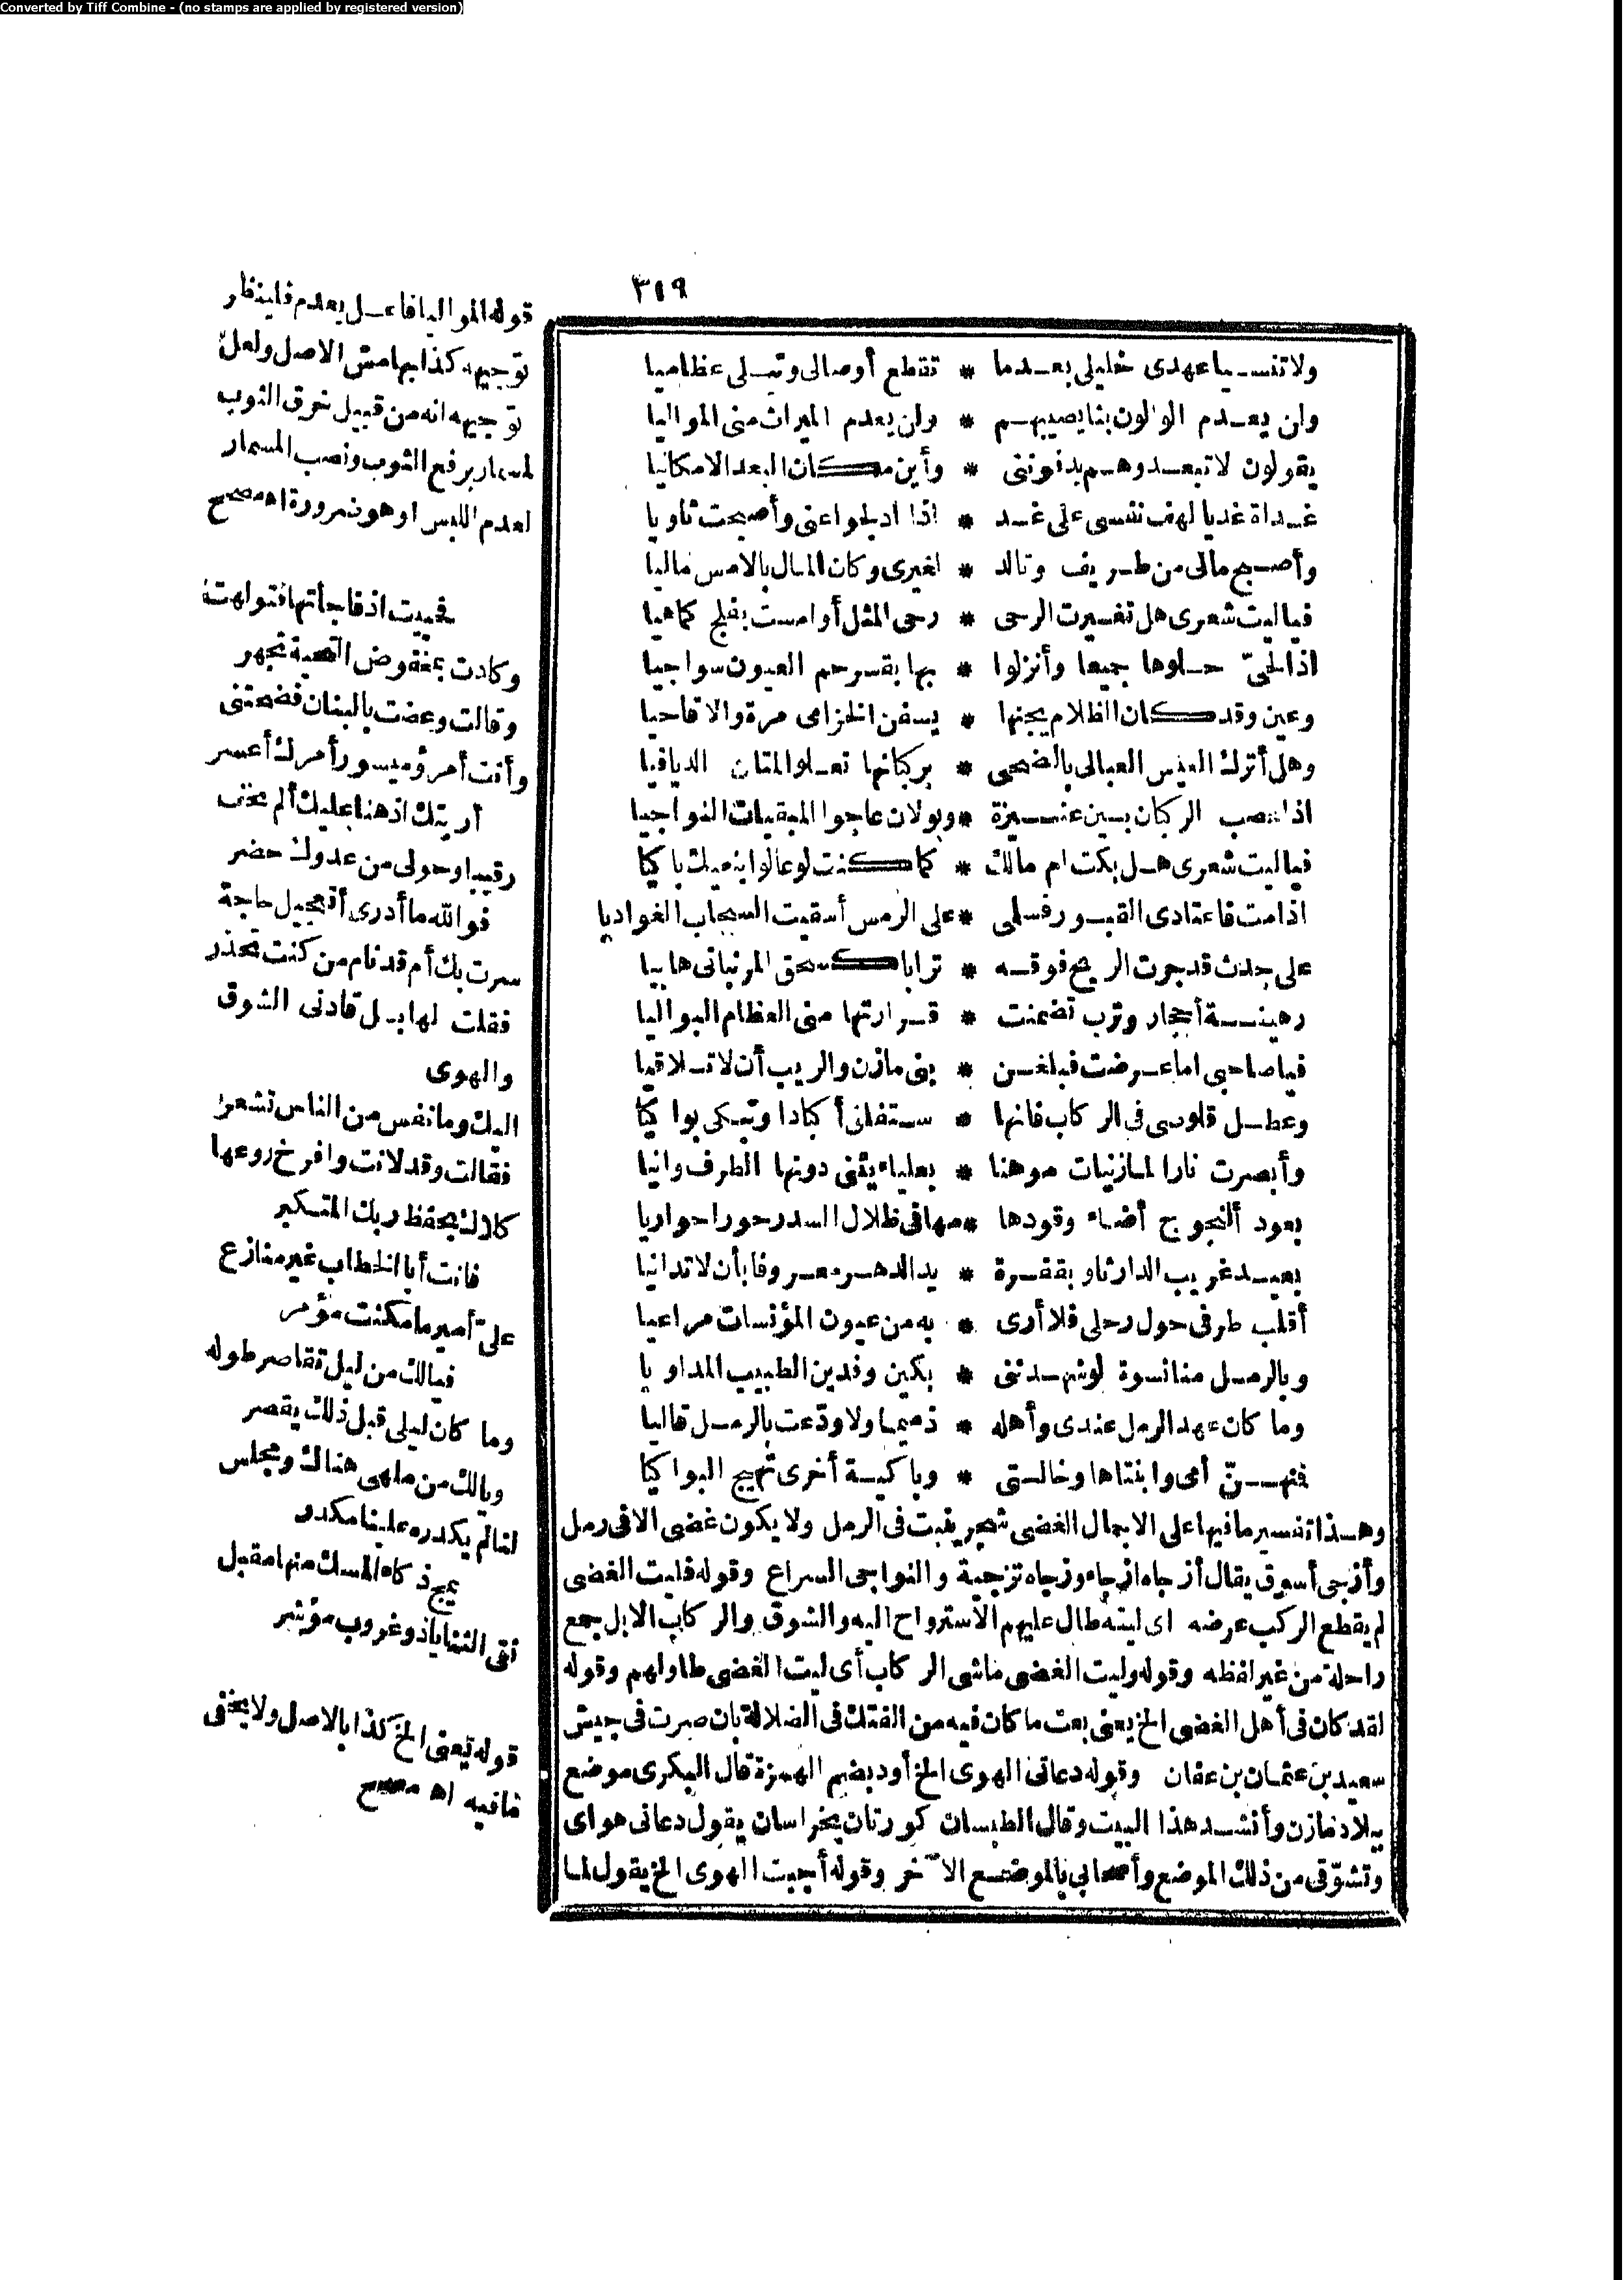 Converted by Tiff Combine - (no stamps are applied by registered version)
٣١٩
ولا تنسيا عهدى خليلى بعدما * تقطع أوصالى وتبلى عظاميا
وان يعدم الوالون بثا يصيبهم * وان يعدم الميراث منى المواليا
يقولون لا تبعد وهم يدفنوننى * وأين مكان البعد الا مكانيا
غداة غد يا لهف نفسى على غد * اذا ادلجوا عنى وأصبحت ثاويا
وأصبح مالى من طريف وتالد * لغيرى وكان المال بالامس ماليا
فيا ليت شعرى هل تغيرت الرحى * رحى المثل أو امست بفلج كماهيا
اذا الحىّ حلوها جميعا وأنزلوا * بها بقرا حم العيون سواجيا
وعين وقد كان الظلام يجنها * يسفن الخزامى مرة والاقاحيا
وهل أترك العيس العبالى بالضحى * بركبانها تعلو المتان الديافيا
اذا عصب الركبان بين عنيزة * وبولان عاجوا المبقيات النواجيا
فياليت شعرى هل بكت ام مالك * كما كنت لو عالوا بنعيك باكيا
اذا مت فاعتادى القبور فسلمى * على الرمس أسقيت السحاب الغواديا
على جدث قد جرت الريح فوقه * ترابا كسحق المرنبانى هابيا
رهينة أحجار وترب تضمنت * قرارتها منى العظام البواليا
فياصاحبى اما عرضت فبلغن * بنى مازن والريب أن لا تلاقيا
وعطل قلوصى فى الركاب فانها * ستفلق أكبادا وتبكى بواكيا
وأبصرت نارا لمازنيات موهنا * بعلياء يثنى دونها الطرف وانيا
بعود ألنجوج أضاء وقودها * مها فى ظلال السدر حورا حواريا
بعيد غريب الدار ثاو بقفرة * يد الدهر معروفا بأن لا تدانيا
أقلب طرفى حول رحلى فلا أرى * به من عيون المؤنسات مراعيا
وبالرمل منا نسوة لو شهدننى * بكين وفدين الطبيب المداويا
وما كان عهد الرمل عندى وأهله * ذميما ولا ودّعت بالرمل قاليا
فمنهنّ أمى وابنتاها وخالتى * وباكية أخرى تهيج البواكيا
وهذا تفسير ما فيها على الاجمال الغضى شجر ينبت فى الرمل ولا يكون غضى الا فى رمل
وأزجى أسوق يقال أزجاه ازجاء وزجاه تزجية والنواجى السراع وقوله فليت الغضى
لم يقطع الركب عرضه اى ليته طال عليهم الاسترواح اليه والشوق والركاب الابل جمع
راحلة من غير لفظه وقوله وليت الغضى ماشى الركاب أى ليت الغضى طاولهم وقوله
لقد كان فى أهل الغضى الخ يعنى بعت ما كان فيه من الفتك فى الضلالة بان صرت فى جيش
سعيد بن عثمان بن عفان وقوله دعانى الهوى الخ أود بضم الهمزة قال البكرى موضع
ببلاد مازن وأنشد هذا البيت وقال الطبسان كورتان بخراسان يقول دعانى هواى
وتشوّقى من ذلك الموضع وأصحابى بالموضع الآخر وقوله أجبت الهوى الخ يقول لما
قوله المواليا فاعل يعدم فلينظر
توجيهه كذا بهامش الاصل ولعلّ
توجيهه انه من قبيل خرق الثوب
لمسمار برفع الثوب ونصب المسمار
لعدم اللبس او هو ضرورة اه مصحح
فحييت اذ فاجأتها فتولهت
وكادت بمخفوض التحية تجهر
وقالت وعضت بالبنان فضحتنى
وأنت أمرؤ ميسور أمرك أعسر
أريتك اذ هنا عليك ألم تخف
رقيبا وحولى من عدوك حضر
فوالله ما أدرى أتعجيل حاجة
سرت بك أم قد نام من كنت تحذر
فقلت لها بل قادنى الشوق
والهوى
اليك وما نفس من الناس تشعر
فقالت وقد لانت وافرخ روعها
كلاك بحفظ ربك المتكبر
فانت أبا الخطاب غير منازع
علىّ أمير ما مكنت مؤمر
فيالك من ليل تقاصر طوله
وما كان ليلى قبل ذلك يقصر
ويالك من ملهى هناك ومجلس
لنا لم يكدره علينا مكدر
يمج ذكاء المسك منها مقبل
نقى الثنايا ذو غروب مؤشر
قوله يعنى الخ كذا بالاصل ولا يخفى
ما فيه اه مصحح